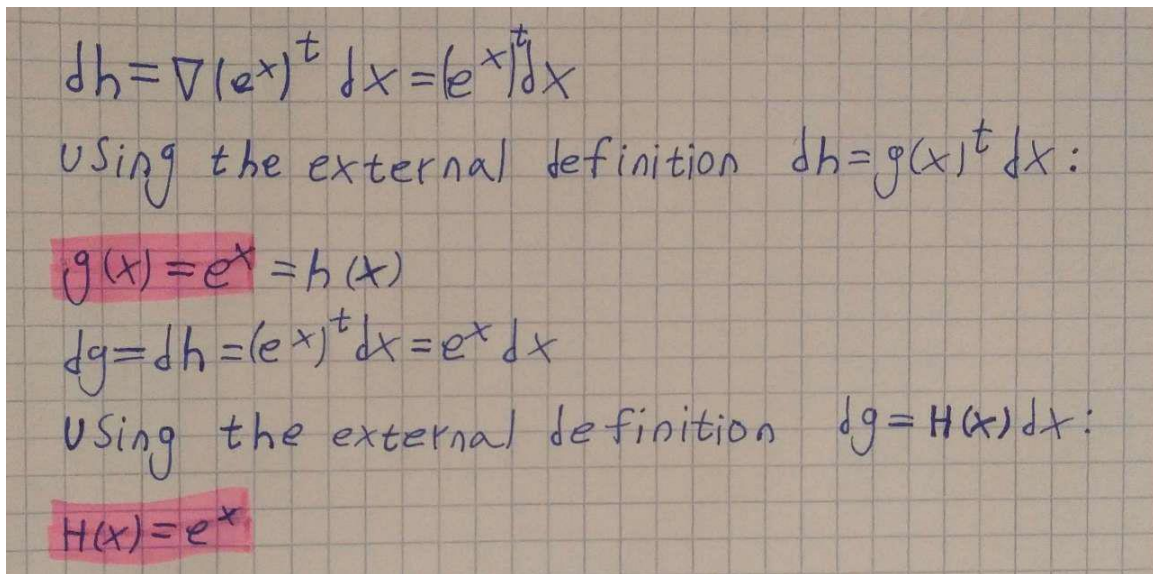 dh=∇(e^x)^t dx=(e^x)^t dx
Using the external definition dh=g(x)^t dx:
g(x)=e^x=h(x)
dg=dh=(e^x)^t dx=e^x dx
Using the external definition dg=H(x)dx:
H(x)=e^x